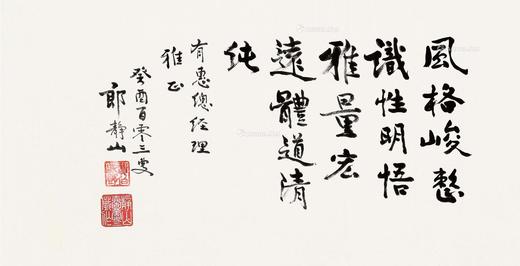 風格峻整
識性明悟
雅量宏
遠體道清
純
有惠總經理
雅正
癸酉百零三叟
郎靜山